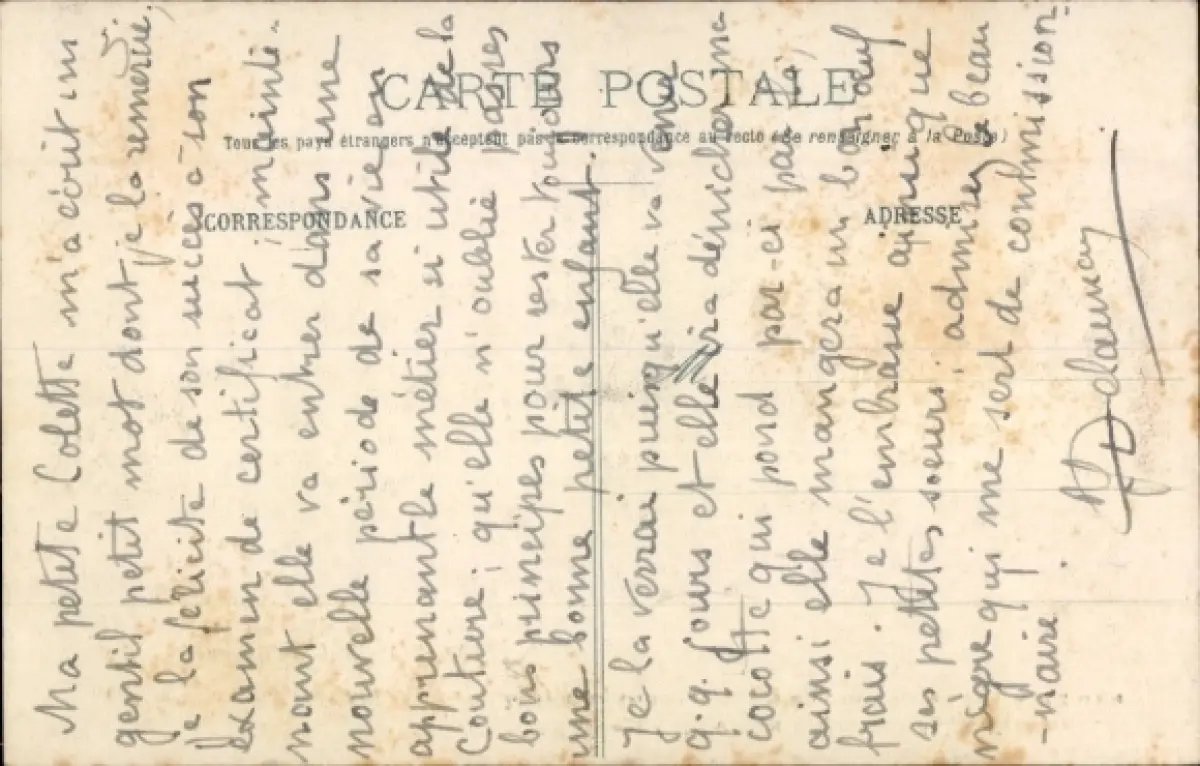 CARTE POSTALE
Tous les pays étrangers n'acceptent pas la correspondance au recto (Se renseigner à la Poste)
CORRESPONDANCE
ADRESSE
Ma petite Colette m'a écrit un
gentil petit mot dont je la remercie,
Je la félicite de son succès à son
Examen de certificat, mainte-
nant elle va entrer dans une
nouvelle période de sa vie en
apprenant le métier si utile de la
Couture; qu'elle n'oublie pas les
bons principes pour rester toujours
une bonne petite enfant.
Je la verrai puisqu'elle va venir
q.q. jours et elle ira dénicher ma
cocotte qui pond par-ci par là,
ainsi elle mangera un bon œuf
frais. Je l'embrasse ainsi que
ses petites soeurs; admirez le beau
nègre qui me sert de commission-
-naire.